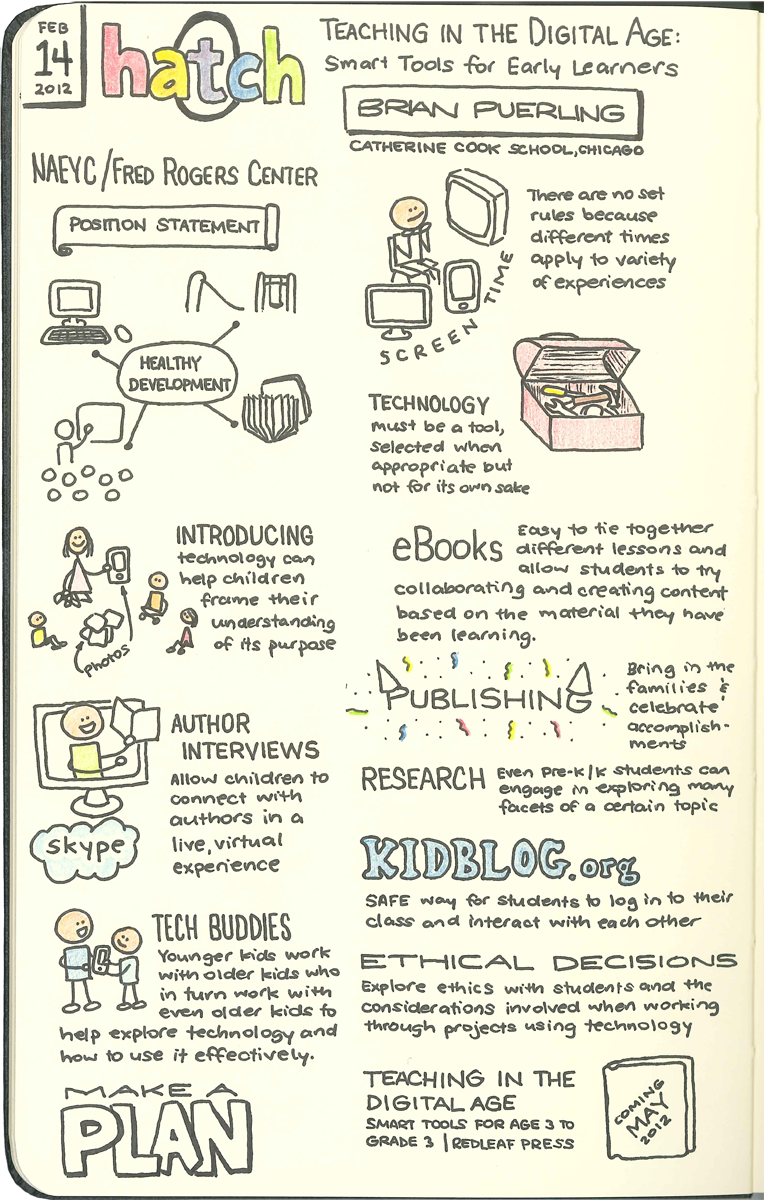 FEB
14
2012
hatch
TEACHING IN THE DIGITAL AGE:
Smart Tools for Early Learners
BRIAN PUERLING
CATHERINE COOK SCHOOL, CHICAGO
NAEYC/FRED ROGERS CENTER
POSITION STATEMENT
HEALTHY
DEVELOPMENT
There are no set
rules because
different times
apply to variety
of experiences
SCREEN TIME
TECHNOLOGY
must be a tool,
selected when
appropriate but
not for its own sake
INTRODUCING
technology can
help children
frame their
understanding
of its purpose
photos
eBooks
Easy to tie together
different lessons and
allow students to try
collaborating and creating content
based on the material they have
been learning.
PUBLISHING
Bring in the
families &
celebrate
accomplish-
ments
AUTHOR
INTERVIEWS
Allow children to
connect with
authors in a
live, virtual
experience
skype
RESEARCH
Even Pre-K/K students can
engage in exploring many
facets of a certain topic
KIDBLOG.org
SAFE way for students to log in to their
class and interact with each other
TECH BUDDIES
Younger kids work
with older kids who
in turn work with
even older kids to
help explore technology and
how to use it effectively.
ETHICAL DECISIONS
Explore ethics with students and the
considerations involved when working
through projects using technology
MAKE A
PLAN
TEACHING IN THE
DIGITAL AGE
SMART TOOLS FOR AGE 3 TO
GRADE 3 | REDLEAF PRESS
COMING
MAY
2012